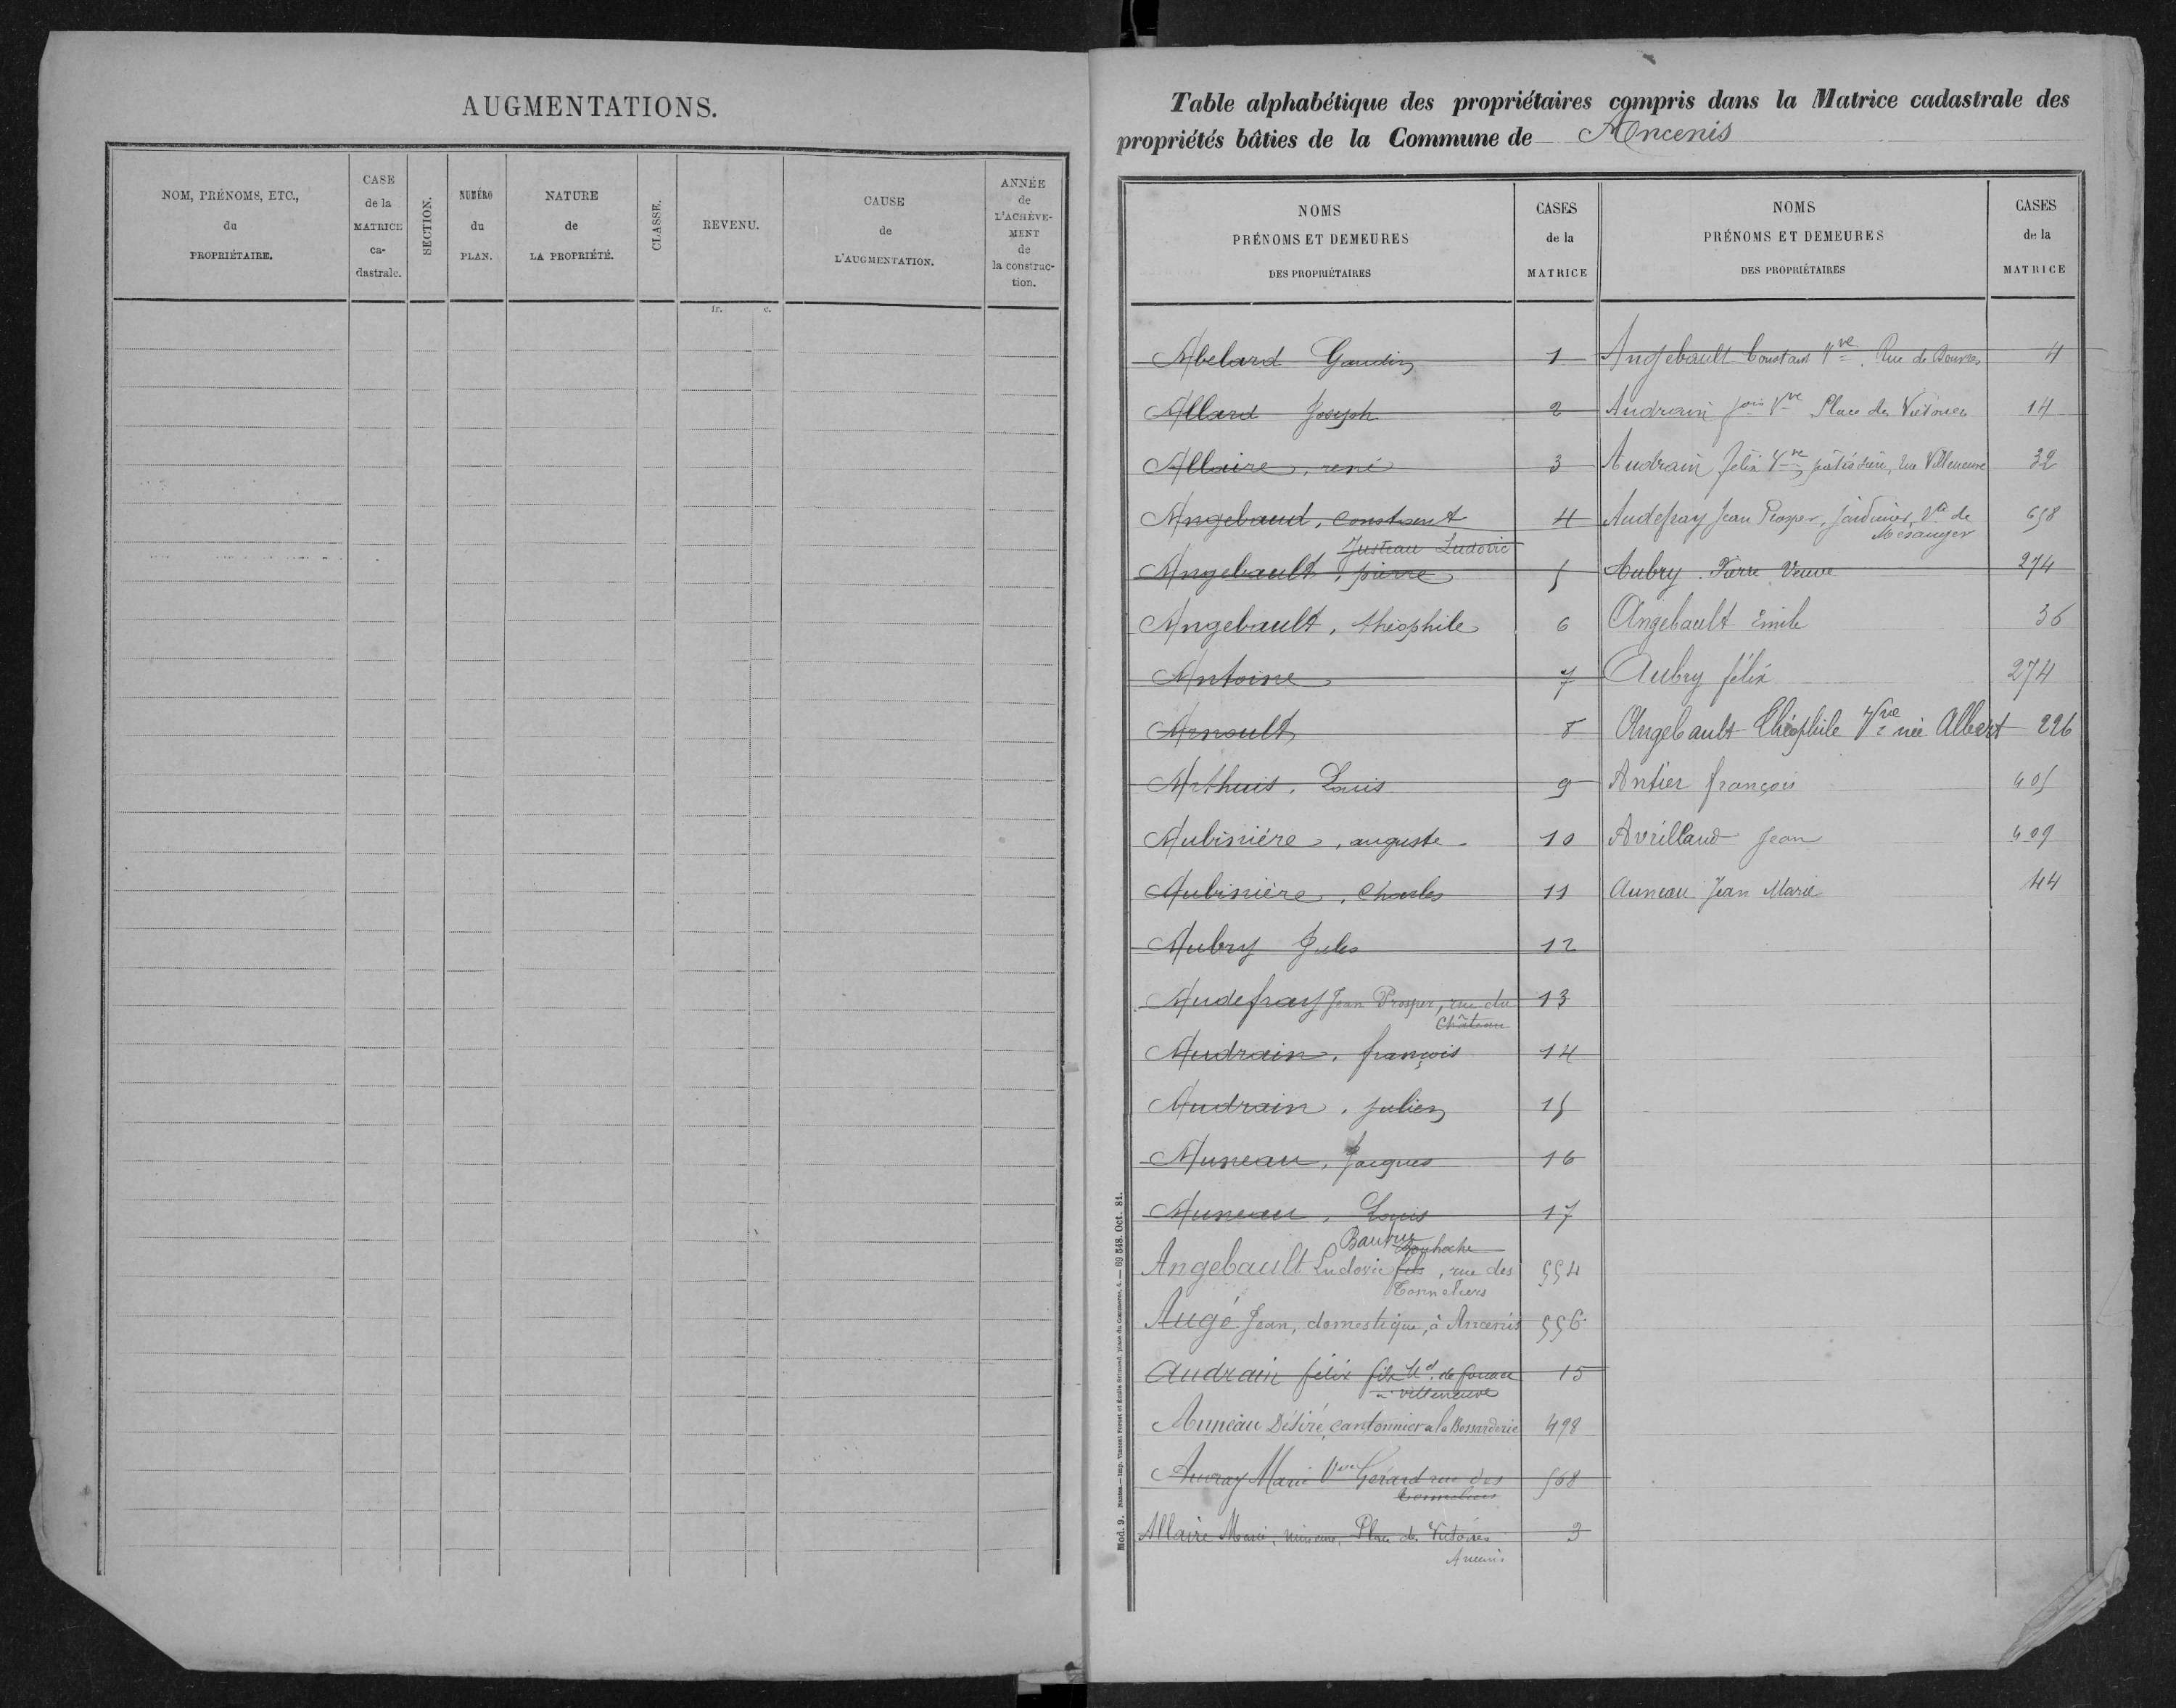 AUGMENTATIONS.
NOM, PRÉNOMS, ETC.,
du
PROPRIÉTAIRE.
CASE
de la
MATRICE
ca-
dastrale.
SECTION.
NUMÉRO
du
PLAN.
NATURE
de
LA PROPRIÉTÉ.
CLASSE.
REVENU.
fr. c.
CAUSE
de
L'AUGMENTATION.
ANNÉE
de
L'ACHÈVE-
MENT
de
la construc-
tion.
Table alphabétique des propriétaires compris dans la Matrice cadastrale des
propriétés bâties de la Commune de Ancenis
NOMS
PRÉNOMS ET DEMEURES
DES PROPRIÉTAIRES
CASES
de la
MATRICE
Abelard Gaudin 1
Allard Joseph 2
Allaire, rené 3
Angebaud, constant 4
Justeau Ludovic
Angebault, pierre 5
Angebault, théophile 6
Antoine 7
Arnoult 8
Arthuis, Louis 9
Aubinière, auguste 10
Aubinière, Charles 11
Aubry Jules 12
Audefray Jean Prosper, rue du 13
Château
Audrain, françois 14
Audrain, julien 15
Auneau, Jacques 16
Auneau, Louis 17
Angebault Ludovic fils, rue des 554
Tonneliers
Augé Jean, domestique, à Ancenis 556
Audrain félix fils Md. de fouace 15
villeneuve
Auneau Désiré, cantonnier a la Bossarderie 498
Auvray Marie Vve Gérard rue des 568
Tonneliers
Allaire Marie, mineure, Place des Victoires 3
Ancenis
Mod. 9.
69 548. Oct. 81.
NOMS
PRÉNOMS ET DEMEURES
DES PROPRIÉTAIRES
CASES
de la
MATRICE
Angebault Constant Vve Rue de 4
Audrain fois Vve Place des Victoires 14
Audrain félix Vve, pâtissière, rue Villeneuve 32
Audefray Jean Prosper, jardinier, Rte de 658
Mésanger
Aubry Pierre Veuve 274
Angebault Emile 36
Aubry félix 274
Angebault Théophile Vve née Albert 226
Antier françois 405
Avrillaud Jean 409
Auneau Jean Marie 44